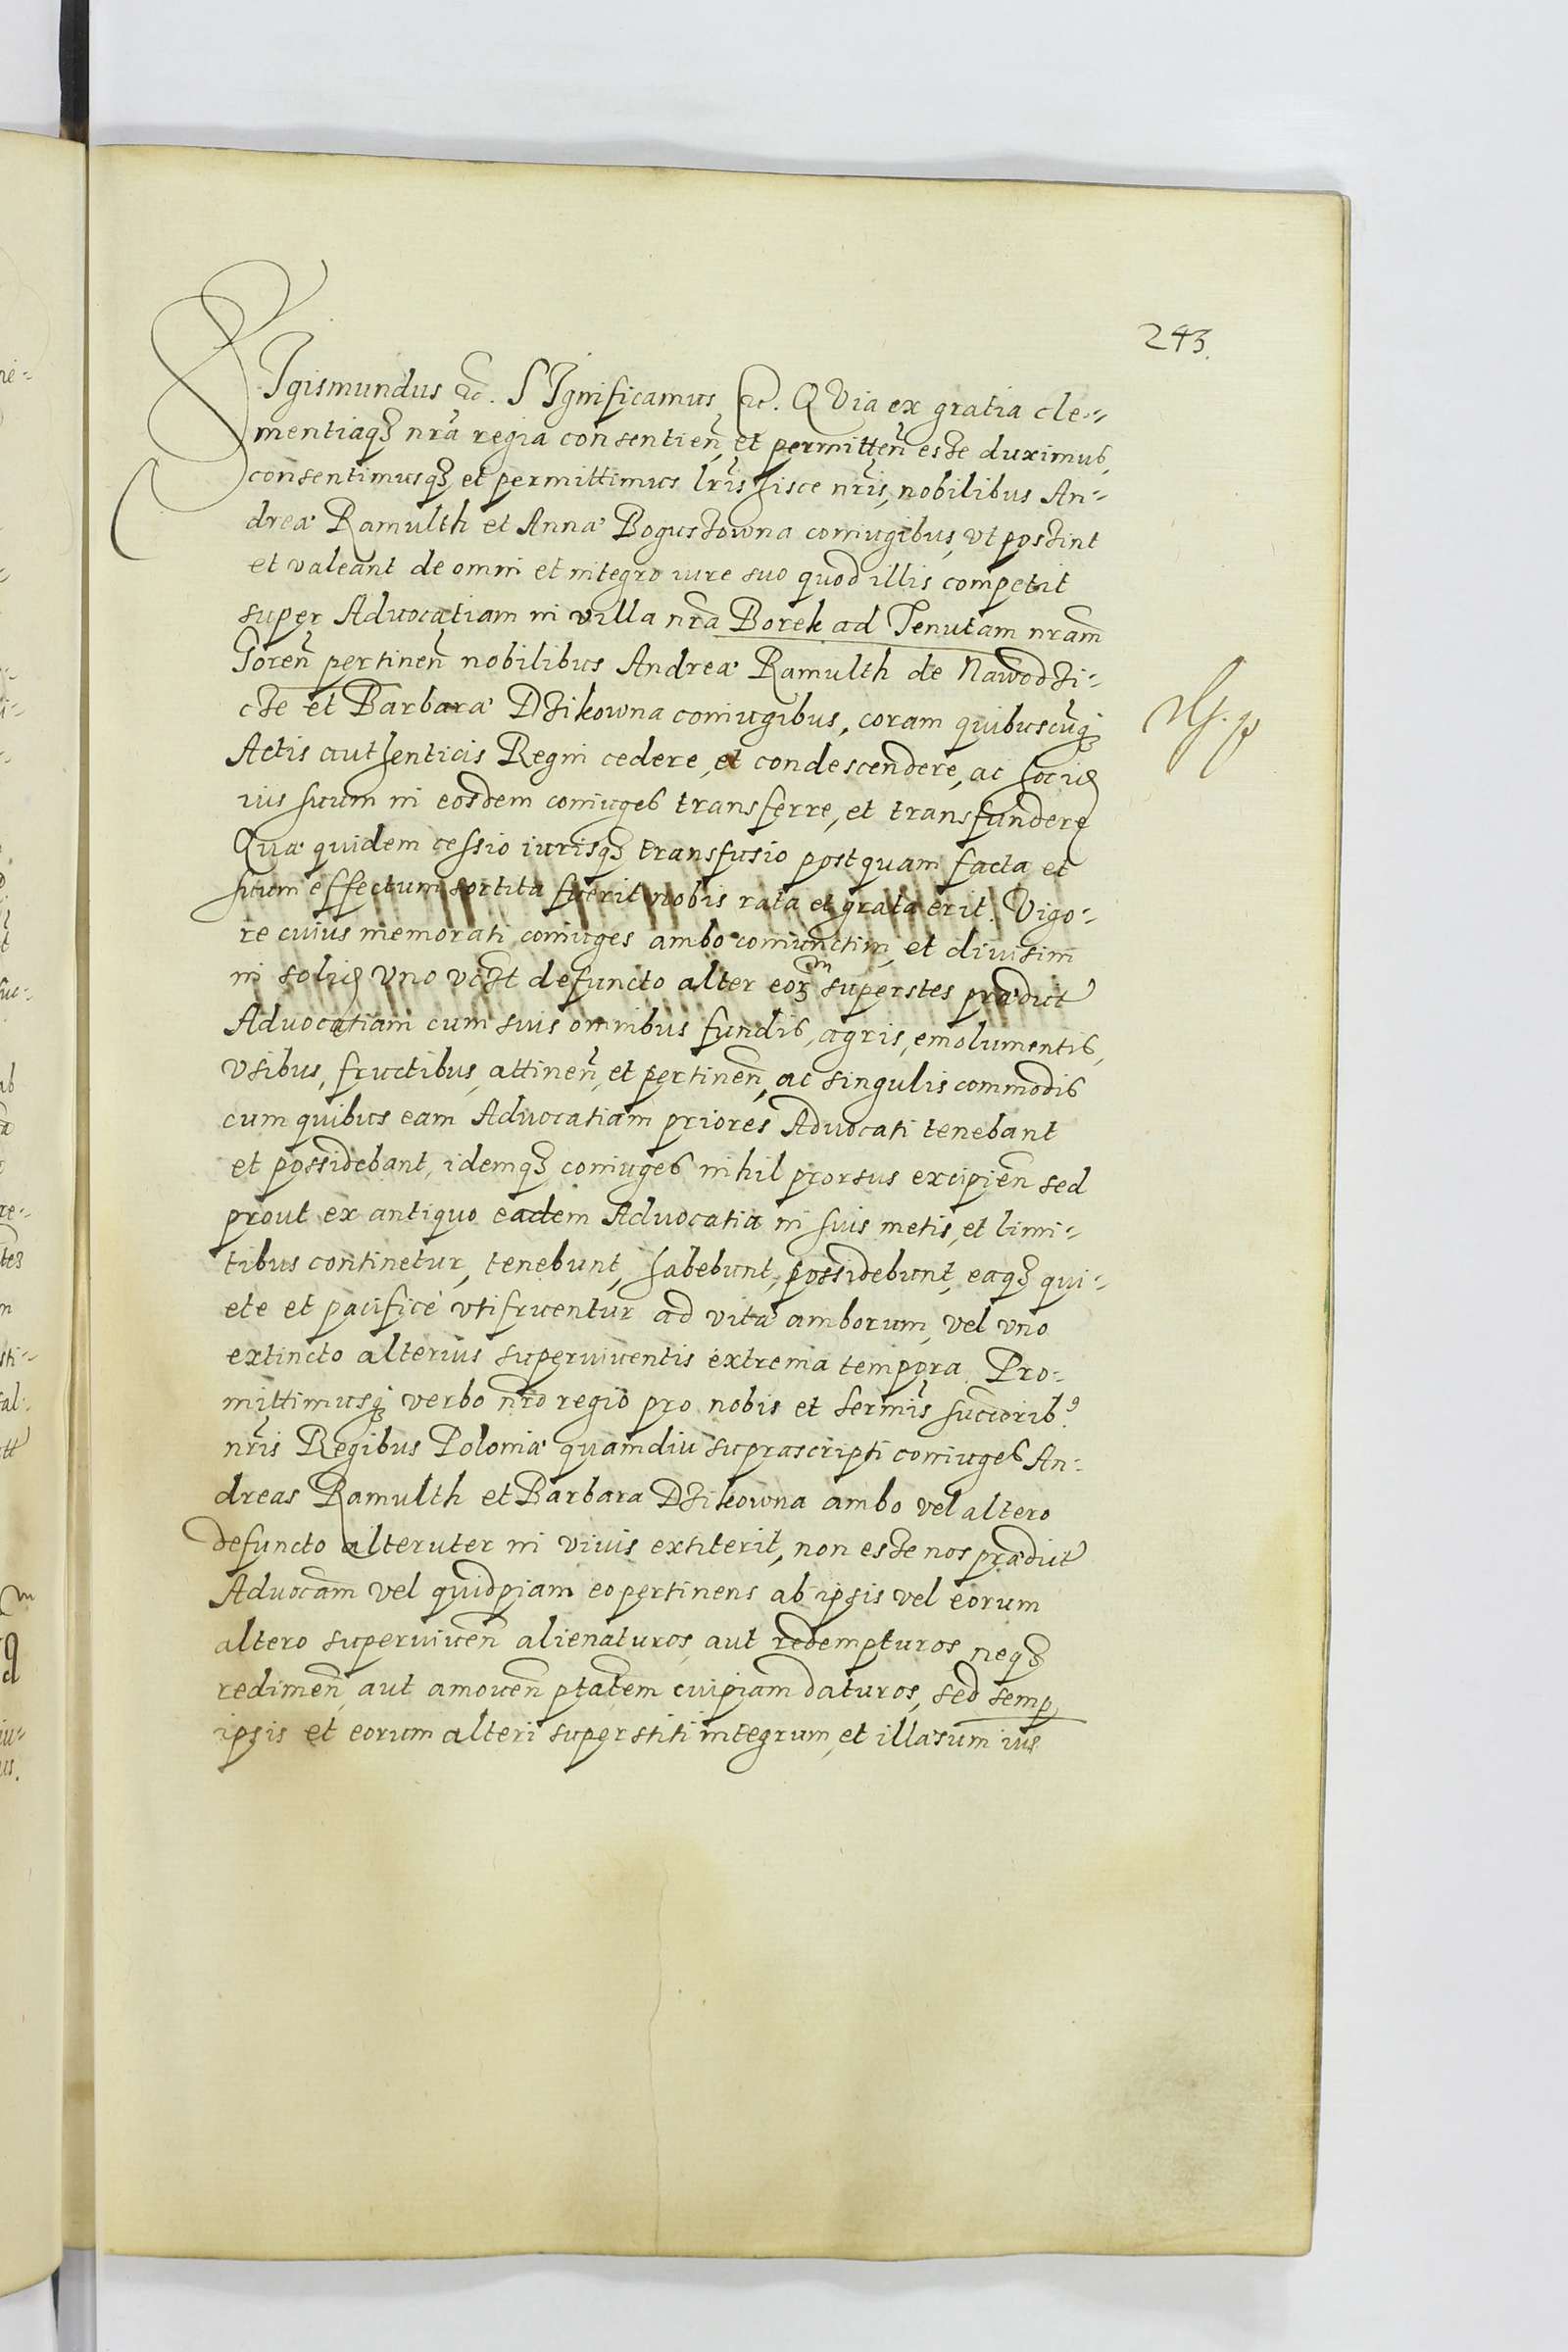 243.
SIgismundus etc. SIgnificamus etc. QVia ex gratia cle-
mentiaq3 nr̃a regia consentien̄, et permitten̄ esse duximus,
consentimusq3 et permittimus lr̃is hisce nr̃is, nobilibus An-
dreæ Ramulth et Annæ Boguszowna coniugibus, vt possint
et valeant de omni et integro iure suo quod illis competit
super Advocatiam in villa nr̃a Borek ad Tenutam nr̃am
Goren̄ pertinen̄ nobilibus Andreæ Ramulth de Nawodzi-
cze et Barbaræ Dzikowna coniugibus, coram quibuscūq3
Actis authenticis Regni cedere, et condescendere, ac
ius suum in eosdem coniuges transferre, et transfundere
Quæ quidem cessio iurisq3 transfusio postquam facta et
suum effectum sortita fuerit nobis rata et grata erit. Vigo-
re cuius memorati coniuges ambo coniunctim, et divisim
in Uno defuncto alter eor3 superstes prædict
Advocatiam cum suis omnibus fundis, agris, emolumentis,
vsibus, fructibus, attinen̄, et pertinen̄, ac singulis commodis
cum quibus eam Advocatiam priores Advocati tenebant
et possidebant, idemq3 coniuges nihil prorsus excipien̄ sed
prout ex antiquo eadem Advocatia in suis metis, et limi-
tibus continetur, tenebunt, habebunt, possidebunt, eaq3 qui-
ete et pacifice vtifruentur ad vitæ amborum, vel vno
extincto alterius superviventis extrema tempora. Pro-
mittimusq3 verbo nr̃o regio pro nobis et Sermis Succorib9
nr̃is Regibus Poloniæ quamdiu suprascripti coniuges An-
dreas Ramulth et Barbara Dzikowna ambo vel altero
defuncto alteruter in vivis extiterit, non esse nos prædict
Advocãm vel quidpiam eo pertinens ab ipsis vel eorum
altero superviven̄ alienaturos, aut redempturos neq3
redimen̄, aut amoven̄ ptãtem cuipiam daturos, sed semp
ipsis et eorum alteri superstiti integrum, et illæsum ius